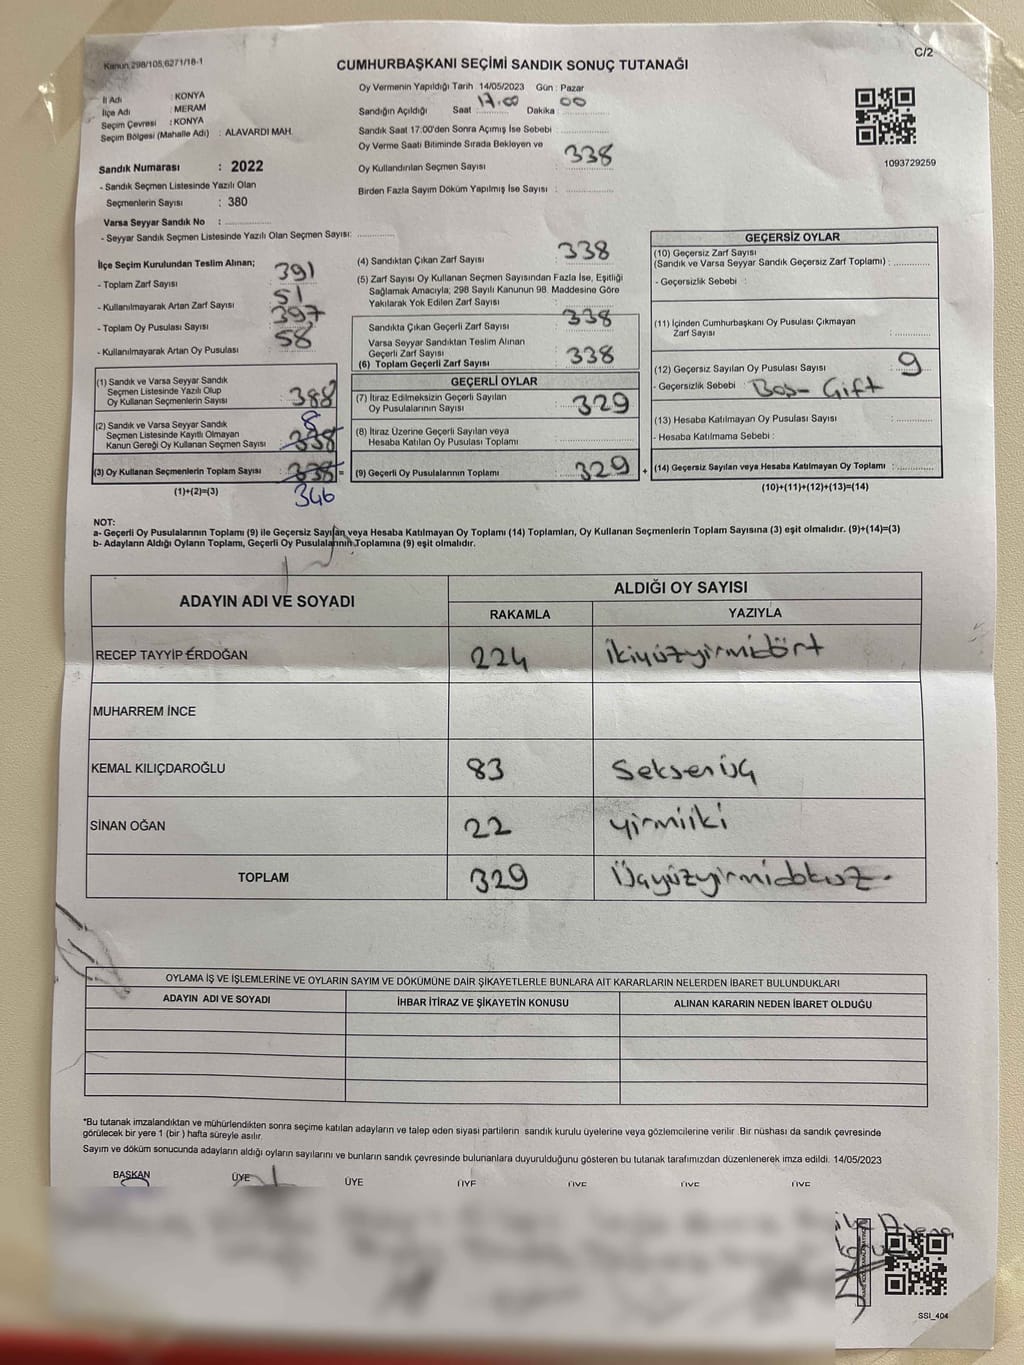 Kanun,298/105,6271/18-1
C/2
CUMHURBAŞKANI SEÇİMİ SANDIK SONUÇ TUTANAĞI
İl Adı : KONYA
İlçe Adı : MERAM
Seçim Çevresi : KONYA
Seçim Bölgesi (Mahalle Adı) : ALAVARDI MAH.
Sandık Numarası : 2022
- Sandık Seçmen Listesinde Yazılı Olan
Seçmenlerin Sayısı : 380
Varsa Seyyar Sandık No :
- Seyyar Sandık Seçmen Listesinde Yazılı Olan Seçmen Sayısı:
Oy Vermenin Yapıldığı Tarih 14/05/2023 Gün : Pazar
Sandığın Açıldığı Saat 17.00 Dakika 00
Sandık Saat 17:00'den Sonra Açımış İse Sebebi :
Oy Verme Saati Bitiminde Sırada Bekleyen ve
Oy Kullandırılan Seçmen Sayısı 338
Birden Fazla Sayım Döküm Yapılmış İse Sayısı :
1093729259
İlçe Seçim Kurulundan Teslim Alınan;
- Toplam Zarf Sayısı 391
- Kullanılmayarak Artan Zarf Sayısı 51
- Toplam Oy Pusulası Sayısı 397
- Kullanılmayarak Artan Oy Pusulası 58
(1) Sandık ve Varsa Seyyar Sandık
Seçmen Listesinde Yazılı Olup
Oy Kullanan Seçmenlerin Sayısı : 388
(2) Sandık ve Varsa Seyyar Sandık
Seçmen Listesinde Kayıtlı Olmayan
Kanun Gereği Oy Kullanan Seçmen Sayısı : 338 8
(3) Oy Kullanan Seçmenlerin Toplam Sayısı : 338 =
(1)+(2)=(3) 346
(4) Sandıktan Çıkan Zarf Sayısı 338
(5) Zarf Sayısı Oy Kullanan Seçmen Sayısından Fazla İse, Eşitliği
Sağlamak Amacıyla, 298 Sayılı Kanunun 98. Maddesine Göre
Yakılarak Yok Edilen Zarf Sayısı :
Sandıkta Çıkan Geçerli Zarf Sayısı 338
Varsa Seyyar Sandıktan Teslim Alınan
Geçerli Zarf Sayısı
(6) Toplam Geçerli Zarf Sayısı 338
GEÇERLİ OYLAR
(7) İtiraz Edilmeksizin Geçerli Sayılan
Oy Pusulalarının Sayısı : 329
(8) İtiraz Üzerine Geçerli Sayılan veya
Hesaba Katılan Oy Pusulası Toplamı :
(9) Geçerli Oy Pusulalarının Toplamı : 329 +
GEÇERSİZ OYLAR
(10) Geçersiz Zarf Sayısı
(Sandık ve Varsa Seyyar Sandık Geçersiz Zarf Toplamı) :
- Geçersizlik Sebebi :
(11) İçinden Cumhurbaşkanı Oy Pusulası Çıkmayan
Zarf Sayısı :
(12) Geçersiz Sayılan Oy Pusulası Sayısı : 9
- Geçersizlik Sebebi : Boş- Gift
(13) Hesaba Katılmayan Oy Pusulası Sayısı :
- Hesaba Katılmama Sebebi :
(14) Geçersiz Sayılan veya Hesaba Katılmayan Oy Toplamı :
(10)+(11)+(12)+(13)=(14)
NOT:
a- Geçerli Oy Pusulalarının Toplamı (9) ile Geçersiz Sayılan veya Hesaba Katılmayan Oy Toplamı (14) Toplamları, Oy Kullanan Seçmenlerin Toplam Sayısına (3) eşit olmalıdır. (9)+(14)=(3)
b- Adayların Aldığı Oyların Toplamı, Geçerli Oy Pusulalarının Toplamına (9) eşit olmalıdır.
ADAYIN ADI VE SOYADI
ALDIĞI OY SAYISI
RAKAMLA YAZIYLA
RECEP TAYYİP ERDOĞAN 224 ikiyüzyirmidört
MUHARREM İNCE
KEMAL KILIÇDAROĞLU 83 Seksenüç
SİNAN OĞAN 22 yirmiiki
TOPLAM 329 Üçyüzyirmidokuz.
OYLAMA İŞ VE İŞLEMLERİNE VE OYLARIN SAYIM VE DÖKÜMÜNE DAİR ŞİKAYETLERLE BUNLARA AİT KARARLARIN NELERDEN İBARET BULUNDUKLARI
ADAYIN ADI VE SOYADI İHBAR İTİRAZ VE ŞİKAYETİN KONUSU ALINAN KARARIN NEDEN İBARET OLDUĞU
*Bu tutanak imzalandıktan ve mühürlendikten sonra seçime katılan adayların ve talep eden siyasi partilerin sandık kurulu üyelerine veya gözlemcilerine verilir. Bir nüshası da sandık çevresinde
görülecek bir yere 1 (bir) hafta süreyle asılır.
Sayım ve döküm sonucunda adayların aldığı oyların sayılarını ve bunların sandık çevresinde bulunanlara duyurulduğunu gösteren bu tutanak tarafımızdan düzenlenerek imza edildi. 14/05/2023
BAŞKAN ÜYE ÜYE ÜYE ÜYE ÜYE ÜYE
SSI_404